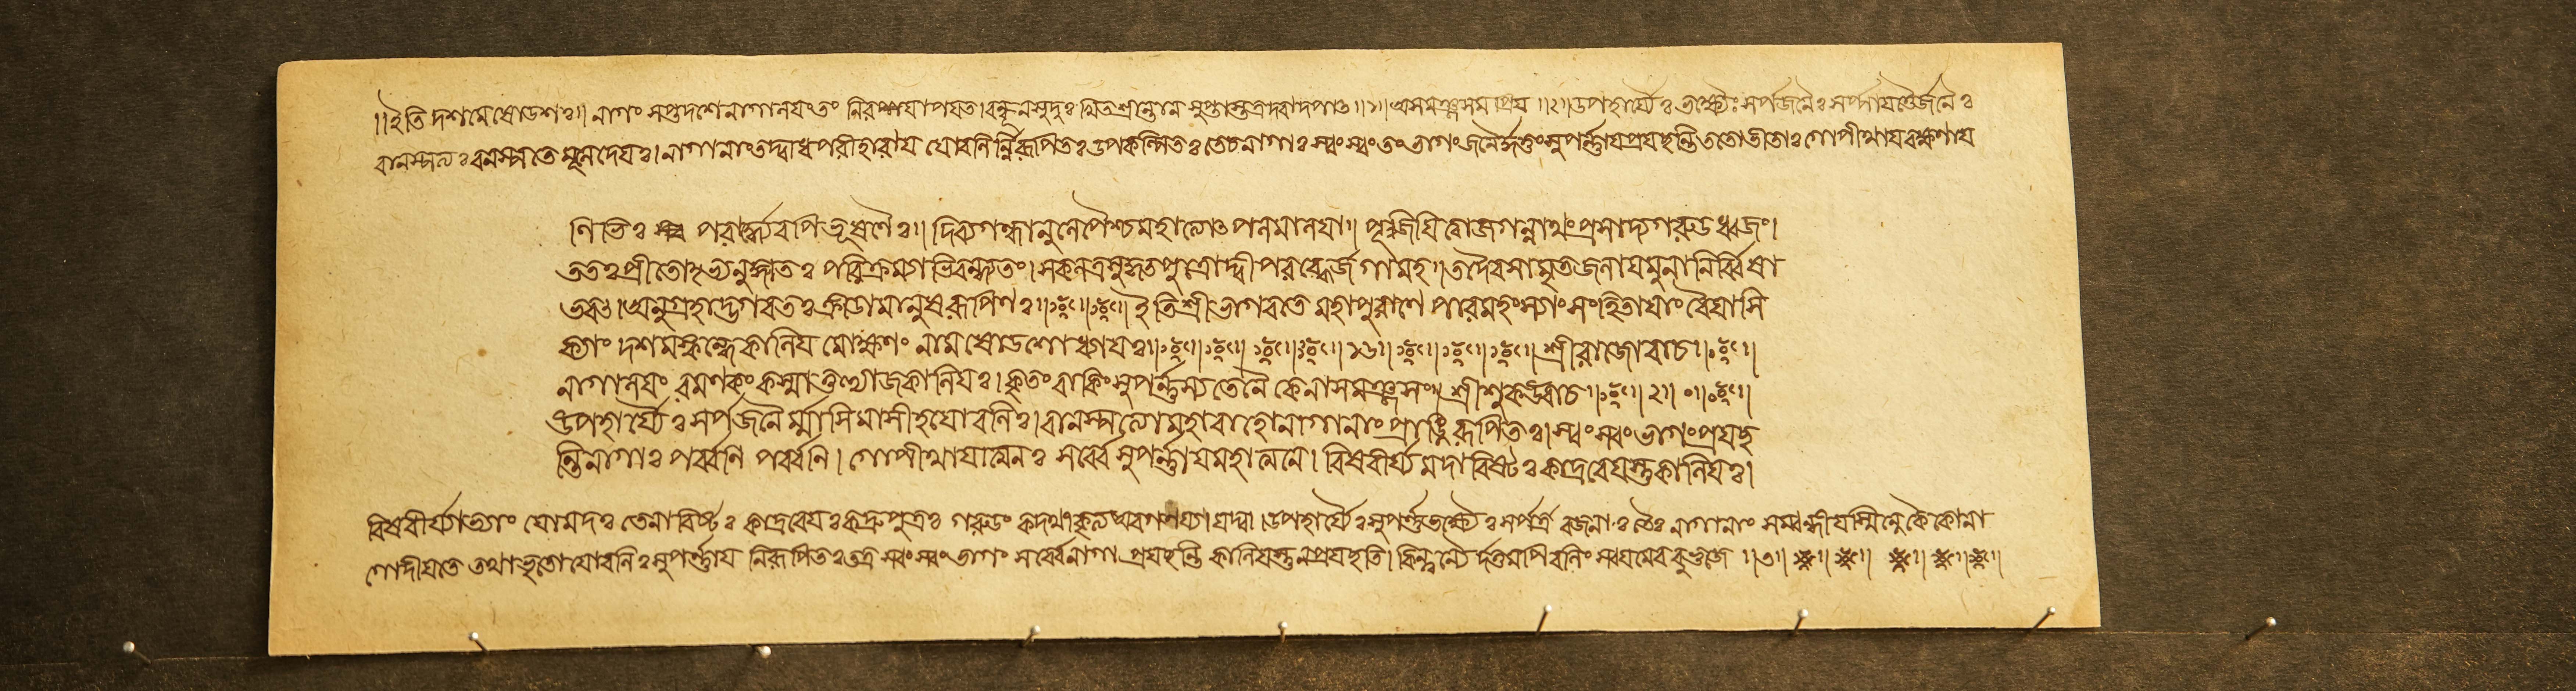 ।।ইতি দশমে ষোডশঃ।। নাগং সপ্তদশে নাগালযংতং নিরযাপযত।বন্ধূনসুদুঃখিতশ্রান্তান সুপ্তাস্তত্রদবাদপাৎ।।১।।অসমঞ্জসমপ্রিয ।।২।।উপহার্য্যৈঃ ভক্ষ্যৈঃ সর্পজনৈঃ সর্প্পাযত্তৈর্জনৈঃ
বানস্পত্যঃ বনস্পতে র্মূলদেযঃ।নাগানাংতদ্বাধপরীহারায যোবলির্ন্নিরূপিতঃউপকল্পিতঃ তেচনাগাঃ স্বংস্বংতং ভাগংজনৈর্দ্দত্তংসুপর্ণ্ণাযপ্রযছন্তি ততোভীতাঃ গোপীথাযরক্ষণায
ণিভিঃ পরার্দ্ধ্যৈরপিভূষণৈঃ।। দিব্যগন্ধানুলেপৈশ্চমহত্যোৎপলমালযা।। পূজযিত্বাজগন্নাথংপ্রসাদ্যগরুডধ্বজং।
ততঃপ্রীতোভ্যনুজ্ঞাতঃ পরিক্রম্যাভিবন্দ্যতং।সকলত্রসুহৃতপুত্রোদ্বীপমব্ধের্জগামহ।।তদৈবসামৃতজলাযমুনানির্ব্বিষা
ভবৎ।অনুগ্রহাদ্ভগবতঃক্রীডামানুষরূপিণঃ।। ইতিশ্রীভাগবতে মহাপুরাণে পারমহংস্যাং সংহিতাযাং বৈযাসি
ক্যাং দশমস্কন্ধেকালিয মোক্ষণং নাম ষোডশোধ্যাযঃ।। ১৬।। শ্রীরাজোবাচ।।
নাগালযং রমণকংকস্মাত্তত্যাজকালিযঃ।কৃতংবাকিংসুপর্ণ্ণস্য তেনৈ কেনাসমঞ্জসং।। শ্রীশুকউবাচ।।
উপহার্য্যৈঃ সর্পজনৈ র্ম্মাসিমাসীহযোবলিঃ।বানস্পত্যোমহাবাহোনাগানাংপ্রাঙ্নিরূপিতঃ।স্বংস্বংভাগংপ্রযছ
ন্তিনাগাঃ পর্ব্বণি পর্ব্বণি। গোপীথাযাত্মনঃ সর্ব্বে সুপর্ণ্ণাযমহাত্মনে। বিষবীর্য্যমদাবিষ্টঃ কাদ্রবেযস্তুকালিযঃ।
বিষবীর্য্যাভ্যাং যোমদঃ তেনাবিষ্টঃ কাদ্রবেযঃকদ্রুপুত্রঃ গরুডং কদর্থীকৃত্য অবগণয্য।যদ্বা।উপহার্য্যৈঃসুপর্ণ্ণভক্ষ্যৈঃ নাগানাং সম্বন্ধী
গোদীযতে তথাভূতোযোবলিঃসুপর্ণ্ণায নিরূপিতঃতত্র স্বংস্বং ভাগং সর্ব্বেনাগা প্রযছন্তি কালিযস্তুনপ্রযছতি। কিন্ত্বন্যৈ র্দত্তমপিবলিং স্বযমেববুভুজে ।।৩।।